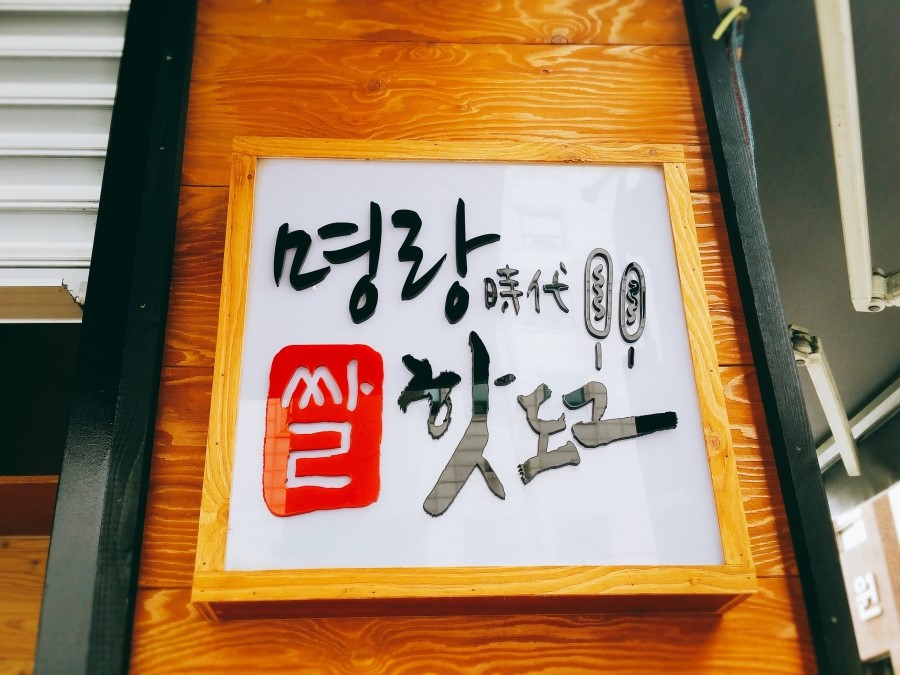 명랑時代
쌀핫도그
원